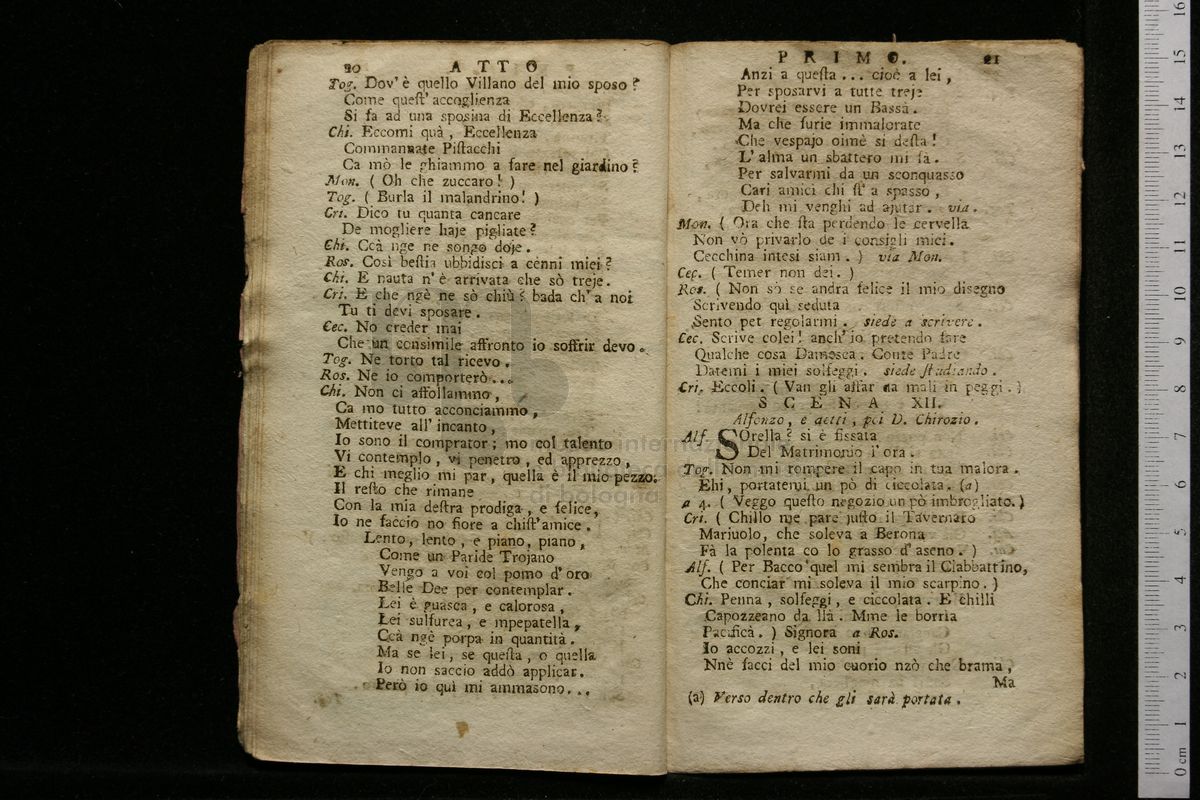 20 ATTO
Tog. Dov' è quello Villano del mio sposo?
Come quest' accoglienza
Si fa ad una sposina di Eccellenza?
Chi. Eccomi quà, Eccellenza
Commannate Pistacchi
Ca mò le ghiammo a fare nel giardino?
Mon. ( Oh che zuccaro! )
Tog. ( Burla il malandrino! )
Cri. Dico tu quanta cancare
De mogliere haje pigliate?
Chi. Ccà nge ne songo doje.
Ros. Così bestia ubbidisci a cenni miei?
Chi. E nauta n' è arrivata che sò treje.
Cri. E che ngè ne sò chiù? bada ch' a noi
Tu ti devi sposare.
Cec. No creder mai
Che un consimile affronto io soffrir devo.
Tog. Ne torto tal ricevo.
Ros. Ne io comporterò...
Chi. Non ci affollammo,
Ca mo tutto acconciammo,
Mettiteve all' incanto,
Io sono il comprator; mo col talento
Vi contemplo, vi penetro, ed apprezzo,
E chi meglio mi par, quella è il mio pezzo.
Il resto che rimane
Con la mia destra prodiga, e felice,
Io ne faccio no fiore a chist' amice.
Lento, lento, e piano, piano,
Come un Paride Trojano
Vengo a voi col pomo d' oro
Belle Dee per contemplar.
Lei è guasca, e calorosa,
Lei sulfurea, e mpepatella,
Ccà ngè porpa in quantità.
Ma se lei, se questa, o quella
Io non saccio addò applicar.
Però io quì mi ammasono...
PRIMO. 21
Anzi a questa... cioè a lei,
Per sposarvi a tutte treje
Dovrei essere un Bassà.
Ma che furie immalorate
Che vespajo oimè si desta!
L' alma un sbattero mi fa.
Per salvarmi da un sconquasso
Cari amici chi st' a spasso,
Deh mi venghi ad ajutar. via.
Mon. ( Ora che sta perdendo le cervella
Non vò privarlo de i consigli miei.
Cecchina intesi siam. ) via Mon.
Cec. ( Temer non dei. )
Ros. ( Non sò se andra felice il mio disegno
Scrivendo quì seduta
Sento pet regolarmi. siede a scrivere.
Cec. Scrive colei! anch' io pretendo fare
Qualche cosa Damesca. Conte Padre
Datemi i miei solfeggi. siede studiando.
Cri. Eccoli. ( Van gli affar da mali in peggi. )
SCENA XII.
Alfonzo, e detti, poi D. Chirozio.
Alf. SOrella? si è fissata
Del Matrimonio l' ora.
Tog. Non mi rompere il capo in tua malora.
Ehi, portatemi un pò di ciccolata. (a)
a 4. ( Veggo questo negozio un pò imbrogliato. )
Cri. ( Chillo me pare justo il Tavernaro
Mariuolo, che soleva a Berona
Fà la polenta co lo grasso d' aseno. )
Alf. ( Per Bacco quel mi sembra il Ciabbattino,
Che conciar mi soleva il mio scarpino. )
Chi. Penna, solfeggi, e ciccolata. E chilli
Capozzeano da llà. Mme le borria
Pacificà. ) Signora a Ros.
Io accozzi, e lei soni
Nnè facci del mio cuorio nzò che brama,
Ma
(a) Verso dentro che gli sarà portata.